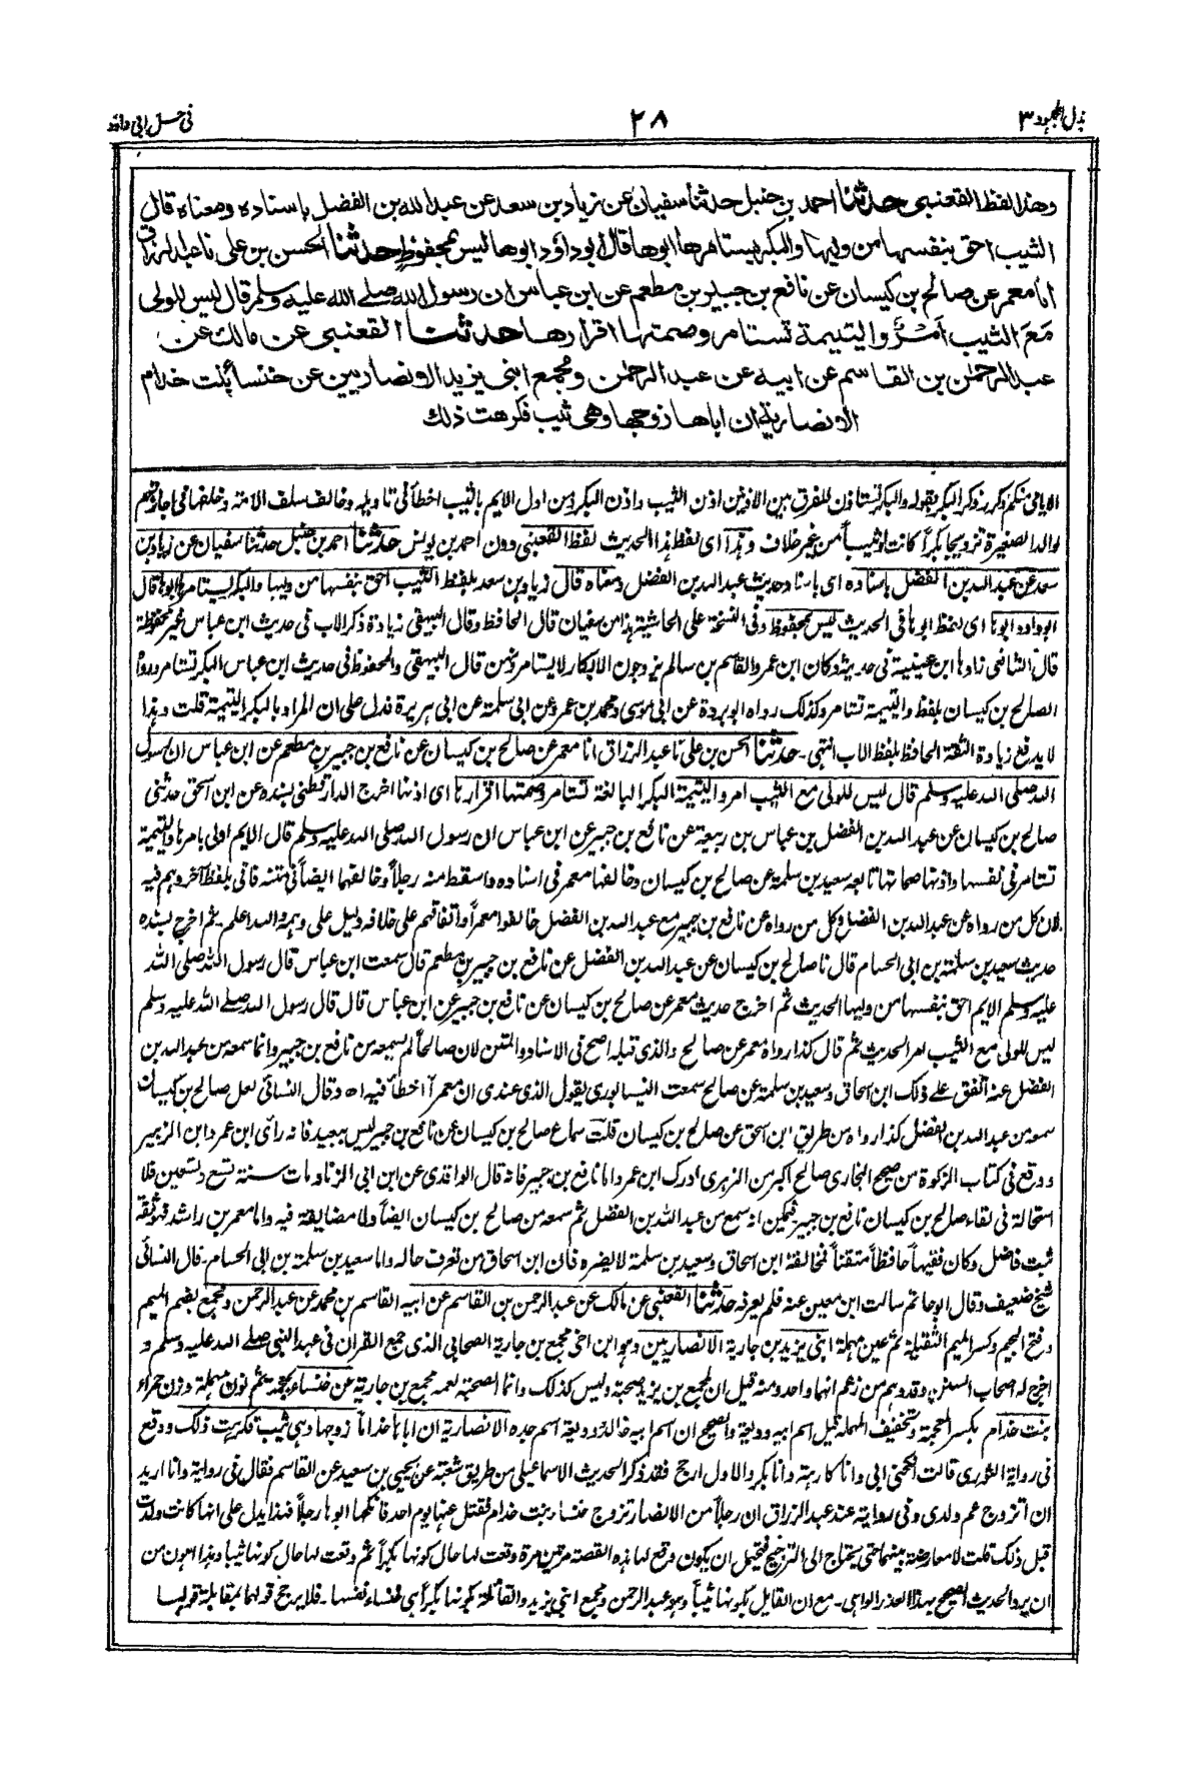 بذل المجهود ٣
٢٨
في حل ابي داؤد
وهذا لفظ القعنبي حدثنا احمد بن حنبل حدثنا سفيان عن زياد بن سعد عن عبد الله بن الفضل باسناده ومعناه قال
الثيب احق بنفسها من وليها والبكر يستامرها ابوها قال ابو داؤد ابوها ليس بمحفوظ حدثنا الحسن بن علي نا عبد الرزاق
انا معمر عن صالح بن كيسان عن نافع بن جبير بن مطعم عن ابن عباس ان رسول الله صلى الله عليه وسلم قال ليس للولي
مَعَ الثيب اَمْرٌ واليتيمة تستامر وصمتها اقرارها حدثنا القعنبي عن مالك عن
عبد الرحمٰن بن القاسم عن ابيه عن عبد الرحمٰن ومجمع ابني يزيد الانصاريين عن خنساء بنت خذام
الانصارية ان اباها زوجها وهي ثيب فكرهت ذلك
الايامى منكم وكرر ذكر البكر بقوله والبكر تستاذن للفرق بين الاذنين اذن الثيب واذن البكر ومن اول الايم بالثيب اخطأ في تاويله وخالف سلف الامة وخلفها في اجازتهم
لوالد الصغيرة تزويجها بكراً كانت او ثيباً من غير خلاف وهذا اى لفظ هذا الحديث لفظ القعنبي دون احمد بن يونس حدثنا احمد بن حنبل حدثنا سفيان عن زياد بن
سعد عن عبد الله بن الفضل باسناده اى باسناد حديث عبد الله بن الفضل ومعناه قال زياد بن سعد بلفظ الثيب احق بنفسها من وليها والبكر يستامرها ابوها قال
ابو داود ابوها اى لفظ ابوها في الحديث ليس بمحفوظ وفى النسخة على الحاشية هذا من سفيان قال الحافظ وقال البيهقي زيادة ذكر الاب فى حديث ابن عباس غير محفوظة
قال الشافعي زادها ابن عيينة في حديثه وكان ابن عمر والقاسم بن سالم يزوجون الابكار لا يستامروهن قال البيهقي والمحفوظ فى حديث ابن عباس البكر تستامر ورواه
الصالح بن كيسان بلفظ واليتيمة تستامر وكذلك رواه ابو بردة عن ابى موسى ومحمد بن عمرو عن ابى سلمة عن ابى هريرة فدل على ان المراد بالبكر اليتيمة قلت وهذا
لا يدفع زيادة الثقة الحافظ بلفظ الاب انتهى۔ حدثنا الحسن بن علي نا عبد الرزاق انا معمر عن صالح بن كيسان عن نافع بن جبير بن مطعم عن ابن عباس ان رسول
الله صلى الله عليه وسلم قال ليس للولى مع الثيب امر واليتيمة البكر البالغة تستامر وصمتها اقرارها اى اذنها اخرج الدارقطني بسنده عن ابن اسحق حدثني
صالح بن كيسان عن عبد الله بن الفضل بن عباس بن ربيعة عن نافع بن جبير عن ابن عباس ان رسول الله صلى الله عليه وسلم قال الايم اولى بامرها واليتيمة
تستامر فى نفسها واذنها صماتها تابعه سعيد بن سلمة عن صالح بن كيسان وخالفهما معمر فى اسناده واسقط منه رجلاً وخالفهما ايضاً فى متنه فاتى بلفظ آخر وهم فيه
لان كل من رواه عن عبد الله بن الفضل وكل من رواه عن نافع بن جبير مع عبد الله بن الفضل خالفوا معمراً واتفاقهم على خلافه دليل على وهمه والله اعلم۔ ثم اخرج بسنده
حديث سعيد بن سلمة بن ابى الحسام قال نا صالح بن كيسان عن عبد الله بن الفضل عن نافع بن جبير بن مطعم قال سمعت ابن عباس قال رسول الله صلى الله
عليه وسلم الايم احق بنفسها من وليها الحديث ثم اخرج حديث معمر عن صالح بن كيسان عن نافع بن جبير عن ابن عباس قال قال رسول الله صلى الله عليه وسلم
ليس للولى مع الثيب امر الحديث ثم قال كذا رواه معمر عن صالح والذى قبله اصح فى الاسناد والمتن لان صالحاً لم يسمعه من نافع بن جبير وانما سمعه من عبد الله بن
الفضل عنه اتفق على ذلك ابن اسحاق وسعيد بن سلمة عن صالح سمعت النيسابورى يقول الذى عندى ان معمراً اخطأ فيه اھ وقال النسائى لعل صالح بن كيسان
سمعه من عبد الله بن الفضل كذا رواه من طريق ابن اسحق عن صالح بن كيسان قلت سماع صالح بن كيسان عن نافع بن جبير ليس ببعيد فانه رأى ابن عمر وابن الزبير
ووقع فى كتاب الزكوة من صحيح البخارى صالح اكبر من الزهرى ادرك ابن عمر واما نافع بن جبير فانه قال الواقدى عن ابن ابى الزناد مات سنة تسع وتسعين فلا
استحالة فى لقاء صالح بن كيسان نافع بن جبير فيمكن انه سمع من عبد الله بن الفضل ثم سمعه من صالح بن كيسان ايضاً ولا مضايقة فيه واما معمر بن راشد فهو ثقة
ثبت فاضل وكان فقيهاً حافظاً متقناً فمخالفة ابن اسحاق وسعيد بن سلمة لا يضره فان ابن اسحاق من تعرف حاله واما سعيد بن سلمة بن ابى الحسام۔ قال النسائى
شيخ ضعيف وقال ابو حاتم سالت ابن معين عنه فلم يعرفه حدثنا القعنبي عن مالك عن عبد الرحمن بن القاسم عن ابيه القاسم بن محمد عن عبد الرحمن ومجمع بضم الميم
وفتح الجيم وكسر الميم الثقيلة ثم عين مهملة ابنى يزيد بن جارية الانصاريين وهو ابن اخى مجمع بن جارية الصحابى الذى جمع القران فى عهد النبى صلى الله عليه وسلم و
اخرج له اصحاب السنن وقد وهم من زعم انهما واحد ومنه قيل ان لمجمع بن يزيد صحبة وليس كذلك وانما الصحبة لعمه مجمع بن جارية عن خنساء بمعجمة ثم نون ثم مهملة وزن حمراء
بنت خذام بكسر المعجمة وتخفيف المهملة قيل اسم ابيه وديعة والصحيح ان اسم ابيه خالد ووديعة اسم جده الانصارية ان اباها خذاماً زوجها وهى ثيب فكرهت ذلك ووقع
فى رواية الثورى قالت انكحنى ابى وانا كارهة وانا بكر والاول ارجح فقد ذكر الحديث الاسماعيلى من طريق شعبة عن يحيى بن سعيد عن القاسم فقال فى رواية وانا اريد
ان اتزوج عم ولدى وفى رواية عند عبد الرزاق ان رجلاً من الانصار تزوج خنساء بنت خذام فقتل عنها يوم احد فانكحها ابوها رجلاً فهذا يدل على انها كانت ولدت
قبل ذلك قلت لا معارضة بينهما حتى يحتاج الى الترجيح فيحتمل ان يكون وقع لها هذه القصة مرتين مرة وقعت لها حال كونها بكراً ثم وقعت لها حال كونها ثيبا وهذا اهون من
ان يرد الحديث الصحيح بهذا العذر الواهى۔ مع ان القايل بكونها ثيباً وهو عبد الرحمن ومجمع ابنى يزيد والقائلة بكونها بكراً هى خنساء نفسها۔ فلا يرجح قولهما بمقابلة قولها